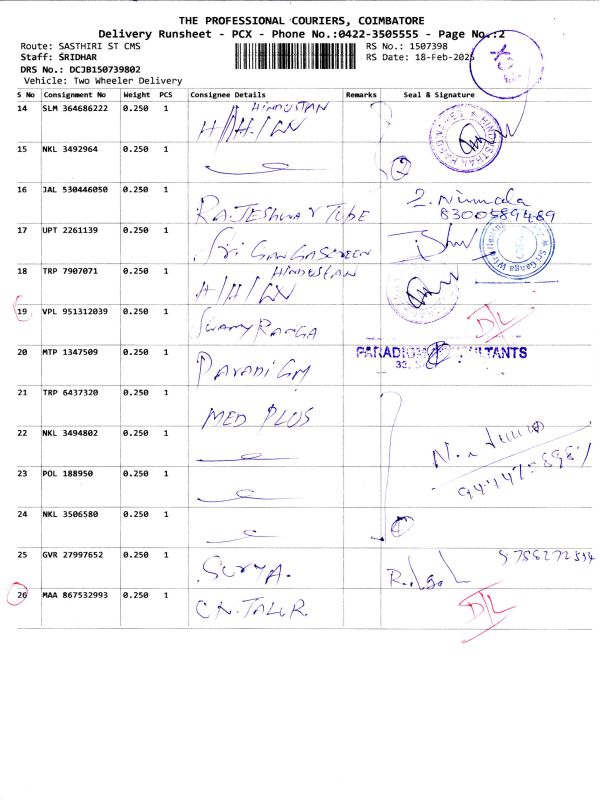 THE PROFESSIONAL COURIERS, COIMBATORE
Delivery Runsheet - PCX - Phone No.:0422-3505555 - Page No.:2
Route: SASTHIRI ST CMS
RS No.: 1507398
Staff: SRIDHAR
RS Date: 18-Feb-2025
DRS No.: DCJB150739802
Vehicle: Two Wheeler Delivery
S No Consignment No Weight PCS Consignee Details Remarks Seal & Signature
14 SLM 364686222 0.250 1 HINDUSTAN
15 NKL 3492964 0.250 1 2
16 JAL 530446050 0.250 1 RAJESHWAR TUBE 2. Nirmala
8300589489
17 UPT 2261139 0.250 1 Sri GANGA SCREEN
18 TRP 7907071 0.250 1 HINDUSTAN
19 VPL 951312039 0.250 1 SWAMY RANGA D/L
20 MTP 1347509 0.250 1 ParadiGM PARADIGM
33,
21 TRP 6437320 0.250 1 MED PLUS
22 NKL 3494802 0.250 1
23 POL 188950 0.250 1
24 NKL 3506580 0.250 1
25 GVR 27997652 0.250 1 SURYA.
26 MAA 867532993 0.250 1 C.N. D/L